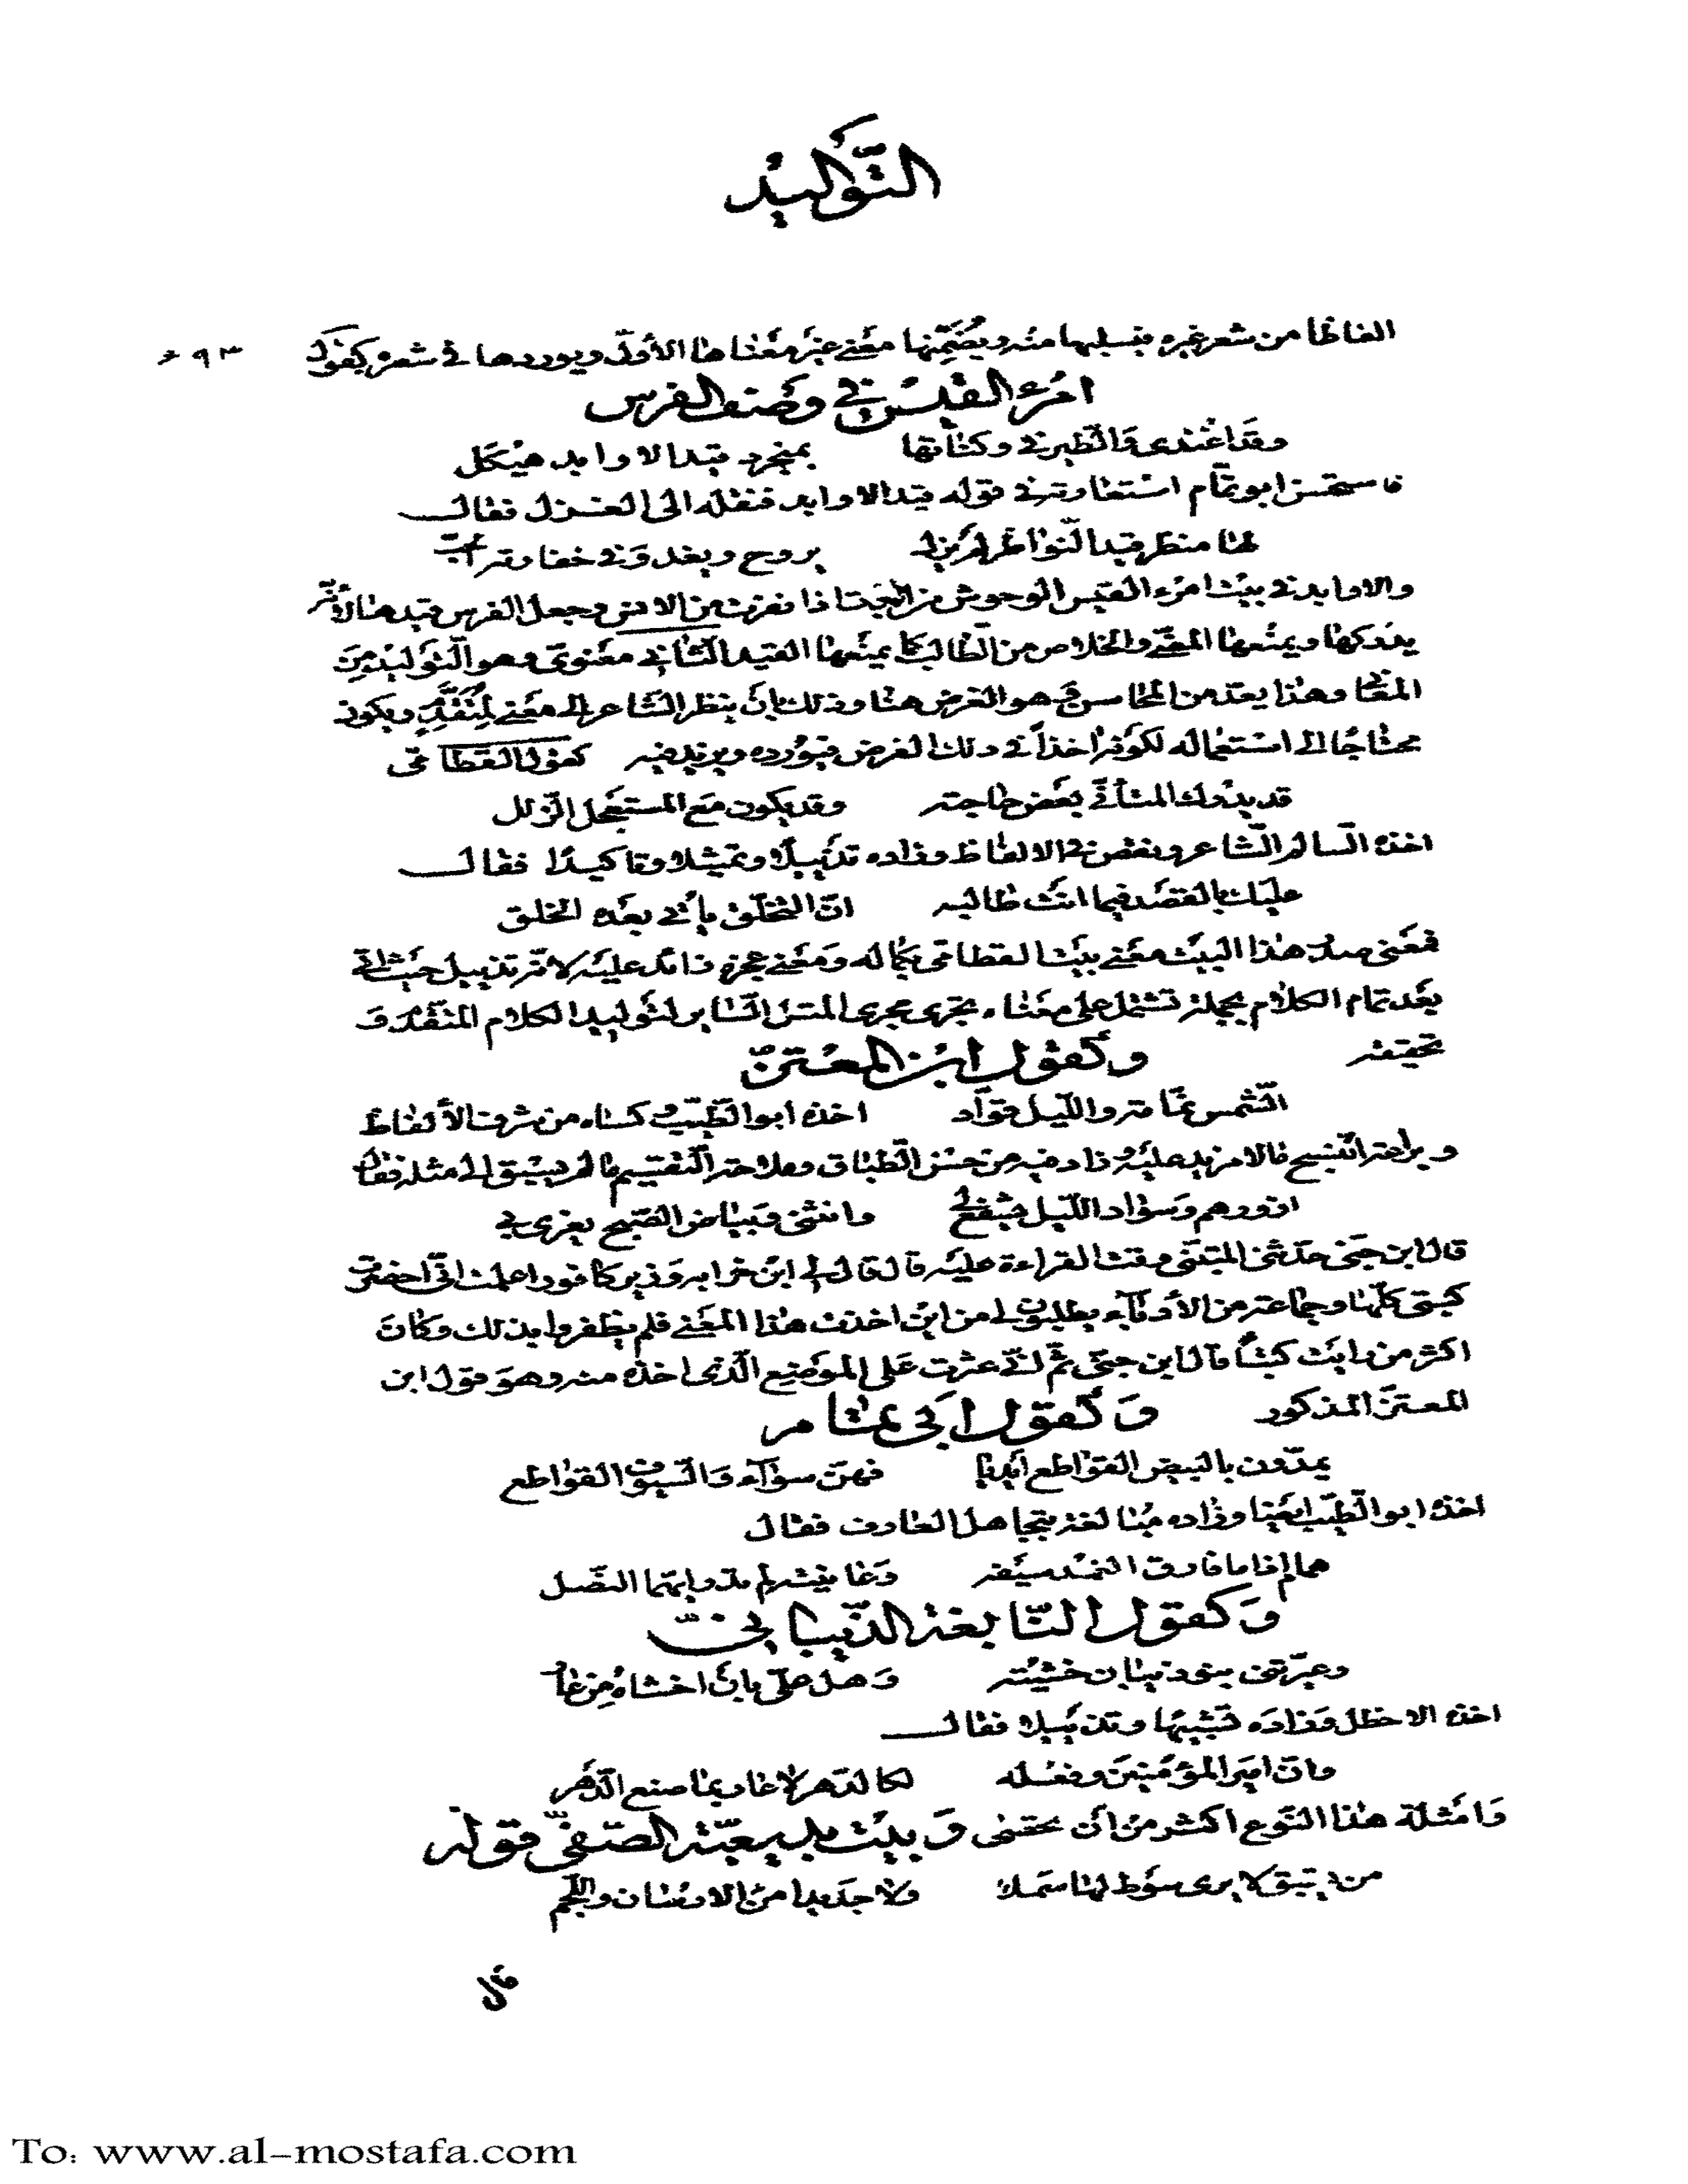 التَّوَليد
الفاظا من شعر غيره فيسلبها منه ويُضَمِّنها معنى غيرَ مَعْناها الأولى ويوردها فى شعره كقول ٦٩٣
امرئ القيس فى وصف الفرس
وقد اغتدى والطير فى وكناتها بمنجرد قيد الاوابد هيكل
فاستحسن ابو تمام استعارته فى قوله قيد الاوابد فنقله الى الغزل فقال
لها منظر قيد النواظر لم يزل يروح ويغدو فى خفارته الحب
والاوابد فى بيت امرء القيس الوحوش من اذا نفرت من الانس وجعل الفرس قيدها لأنّه
يدركها ويمنعها المضى والخلاص من الطالب كما يمنعها القيد الثانى معنوى وهو التوليد من
المعانى وهذا يعد من المحاسن وهو الغرض هنا وذلك بان ينظر الشاعر الى معنى لمتقدم ويكون
محتاجا الى استعماله لكونه اخذا فى ذلك الغرض فيورده ويزيد فيه كقول القطامى
قد يدرك المتأنى بعض حاجته وقد يكون مع المستعجل الزلل
اخذه السالم الشاعر ونقص فى الالفاظ وزاده تذييلا وتمثيلا وتاكيدا فقال
عليك بالقصد فيما انت طالبه ان التخلق يأتى بعده الخلق
فمعنى صدر هذا البيت معنى بيت القطامى بكماله ومعنى عجزه زائد عليه لانه تذييل حيث اتى
بعد تمام الكلام بجملة تشتمل على معناه تجرى مجرى المثل السائر لتوليد الكلام المتقدم و
تحقيقه وكقول ابن المعتز
الشمس نمّامة والليل قوّاد اخذه ابو الطيب وكساه من شرف الألفاظ
وبراعة النسج ما لا مزيد عليه وزاد فيه من حسن الطباق وملاحة التقسيم ما لم يسبق الى مثله فقال
ازورهم وسواد الليل يشفع لى وانثنى وبياض الصبح يغرى بى
قال ابن جنى حدثنى المتنبى وقت القراءة عليه قال قال لى ابن خرابه وزير كافور اعلمت انى احضرت
كتبى كلها وجماعة من الأدباء يطلبون لى من اين اخذت هذا المعنى فلم يظفروا بذلك وكان
اكثر من رايت كتبا قال ابن جنى ثم انى عثرت على الموضع الذى اخذه منه وهو قول ابن
المعتز المذكور وكقول ابى تمام
يمدون بالبيض القواطع ايديا فهن سواء والسيوف القواطع
اخذه ابو الطيب ايضا وزاده مبالغة بتجاهل العارف فقال
همام اذا ما فارق الغمد سيفه وعاينته لم تدر ايهما النصل
وكقول النابغة الذبيانى
وعيّرتنى بنو ذبيان خشيته وهل علىّ بان اخشاه من عار
اخذه الاخطل وزاده تشبيها وتذييلا فقال
وان امير المؤمنين وفعله لكالدهر لا عار بما صنع الدهر
وامثلة هذا النوع اكثر من ان تحصى وبيت بديعية الصفى قوله
من سبق لا يرى سوط لها سملا ولا جديد من الارسان واللجم
To: www.al-mostafa.com